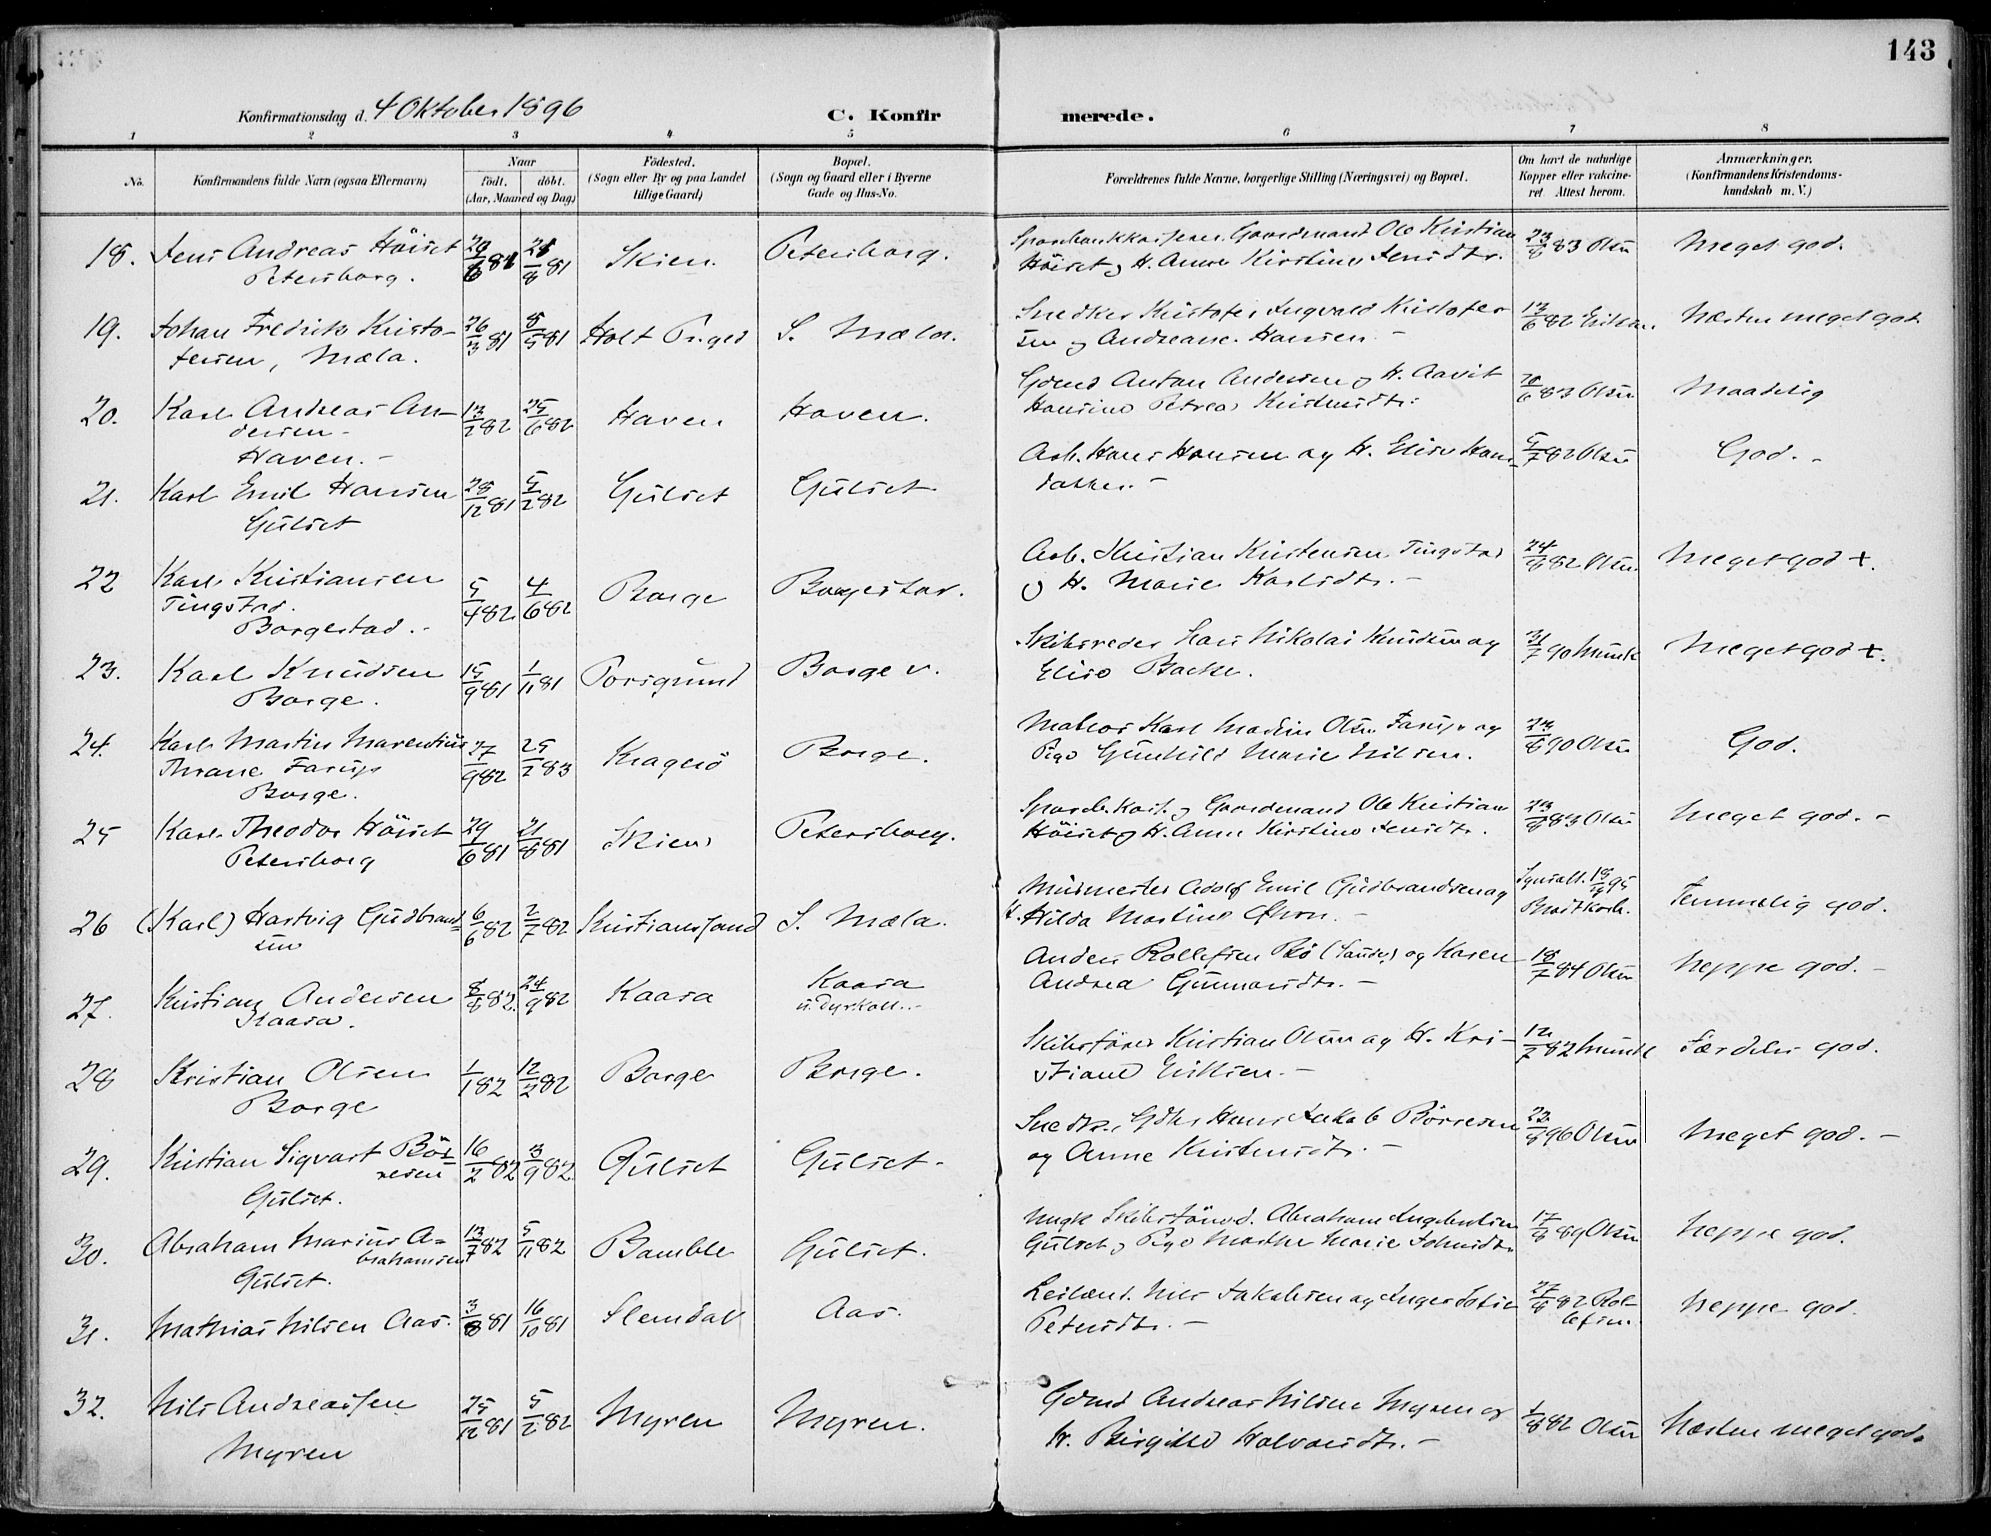 143
Konfirmationsdag d. 4 Oktober 1896
C. Konfirmerede.
1 2 3 4 5 6 7 8
No.
Konfirmandens fulde Navn (ogsaa Efternavn)
Naar
födt. döbt.
(Aar, Maaned og Dag)
Födested.
(Sogn eller By og paa Landet
tillige Gaard)
Bopæl.
(Sogn og Gaard eller i Byerne
Gade og Hus-No.
Forældrenes fulde Navne, borgerlige Stilling (Næringsvei) og Bopæl.
Om havt de naturlige
Kopper eller vakcine-
ret Attest herom.
Anmærkninger.
(Konfirmandens Kristendoms-
kundskab m. V.)
18. Jens Andreas Höiset 29/6 81 21/8 81 Skien. Petersborg. Sparebankkasserer, Gaardmand Ole Kristian 23/8 83 Olsen Meget god.
Petersborg. Höiset og H. Anne Kirstine Jensdtr.
19. Johan Fredrik Kristo- 26/3 81 8/5 81 Holt Prgjd S. Mæla. Snedker Kristofer Ingvald Kristofer- 13/6 82 Eriksen Næsten meget god
fersen, Mæla. sen og Andreane Hansen. -
20. Karl Andreas An- 13/2 82 25/6 82 Haven Haven. Gdmd Anton Andersen og H. Aavit 6 83 Olsen Maadelig
dersen - Hansine Petrea Kristensdtr.
Haven. -
21. Karl Emil Hansen 28/12 81 5/2 82 Gulset Gulset. Arb. Hans Hansen og H. Elise Hans- 5/7 82 Olsen God. -
Gulset datter. -
22 Karl Kristiansen 5/4 82 4/6 82 Borge Borgestad. Arb. Kristian Kristensen Tingstad 24/8 82 Olsen Meget god +.
Tingstad. og H. Marie Karlsdtr. -
Borgestad. -
23. Karl Knudsen 15/9 81 1/11 81 Porsgrund Borge v. Skibsreder Hans Nikolai Knudsen og 31/7 90 Munk Meget god +.
Borge. Elise Backe.
24. Karl Martin Marentius 27/9 82 25/2 83 Kragerö Borge. Matros Karl Martin Olsen Farup og 24/6 90 Olsen God.
Thrane Farup Pige Gunhild Marie Nilsen.
Borge.
25 Karl Theodor Höiset 29/6 81 21/8 81 Skien Petersborg. Spareb. Kass. og Gaardmand Ole Kristian 23/8 83 Olsen Meget god. -
Petersborg Höiset og H. Anne Kirstine Jensdtr.
26 (Karl) Hartvig Gudbrand- 6/6 82 2/7 82 Kristianssand S. Mæla. Murmester Adolf Emil Gudbrandsen og 95 Temmelig god.
sen H. Hilda Martine
27. Kristian Andersen 8/8 82. 24/9 82 Kaasa Kaasa Anders Rollefsen Bö (Saude) og Karen 18/7 84 Olsen Neppe god. -
Kaasa. u. Dyrkoll. - Andrea Gunnarsdtr. -
28 Kristian Olsen 1/1 82 12/2 82 Borge Borge. Skibsförer Kristian Olsen og H. Kri- 12/7 82 Munk Særdeles god.
Borge stiane Eriksen. -
29. Kristian Sigvart Bör- 16/2 82 3/9 82 Gulset Gulset. Snedk., Gdbr Hans Jakob Börresen 23/8 96 Olsen Meget god. -
resen og Anne Kristensdtr. -
Gulset.
30. Abraham Marius A- 13/7 82 5/11 82 Bamble Gulset. Ungk Skibstömd. Abraham Ingebretsen 17/8 89 Olsen Neppe god.
brahamsen Gulset og Pige Marthe Marie Johnsdtr
Gulset.
31. Mathias Nilsen Aas. 3/8 81 16/10 81 Slemdal Aas. Leilænd. Nils Jakobsen og Inger Sofie 27/8 82 Rol- Neppe god.
Petersdtr. - lefsen.
32. Nils Andreassen 25/12 81 5/2 82 Myren Myren. Gdmd Andreas Nilsen Myren og 1/8 82 Olsen Næsten meget god.
Myren H. Birgitte Halvorsdtr. -